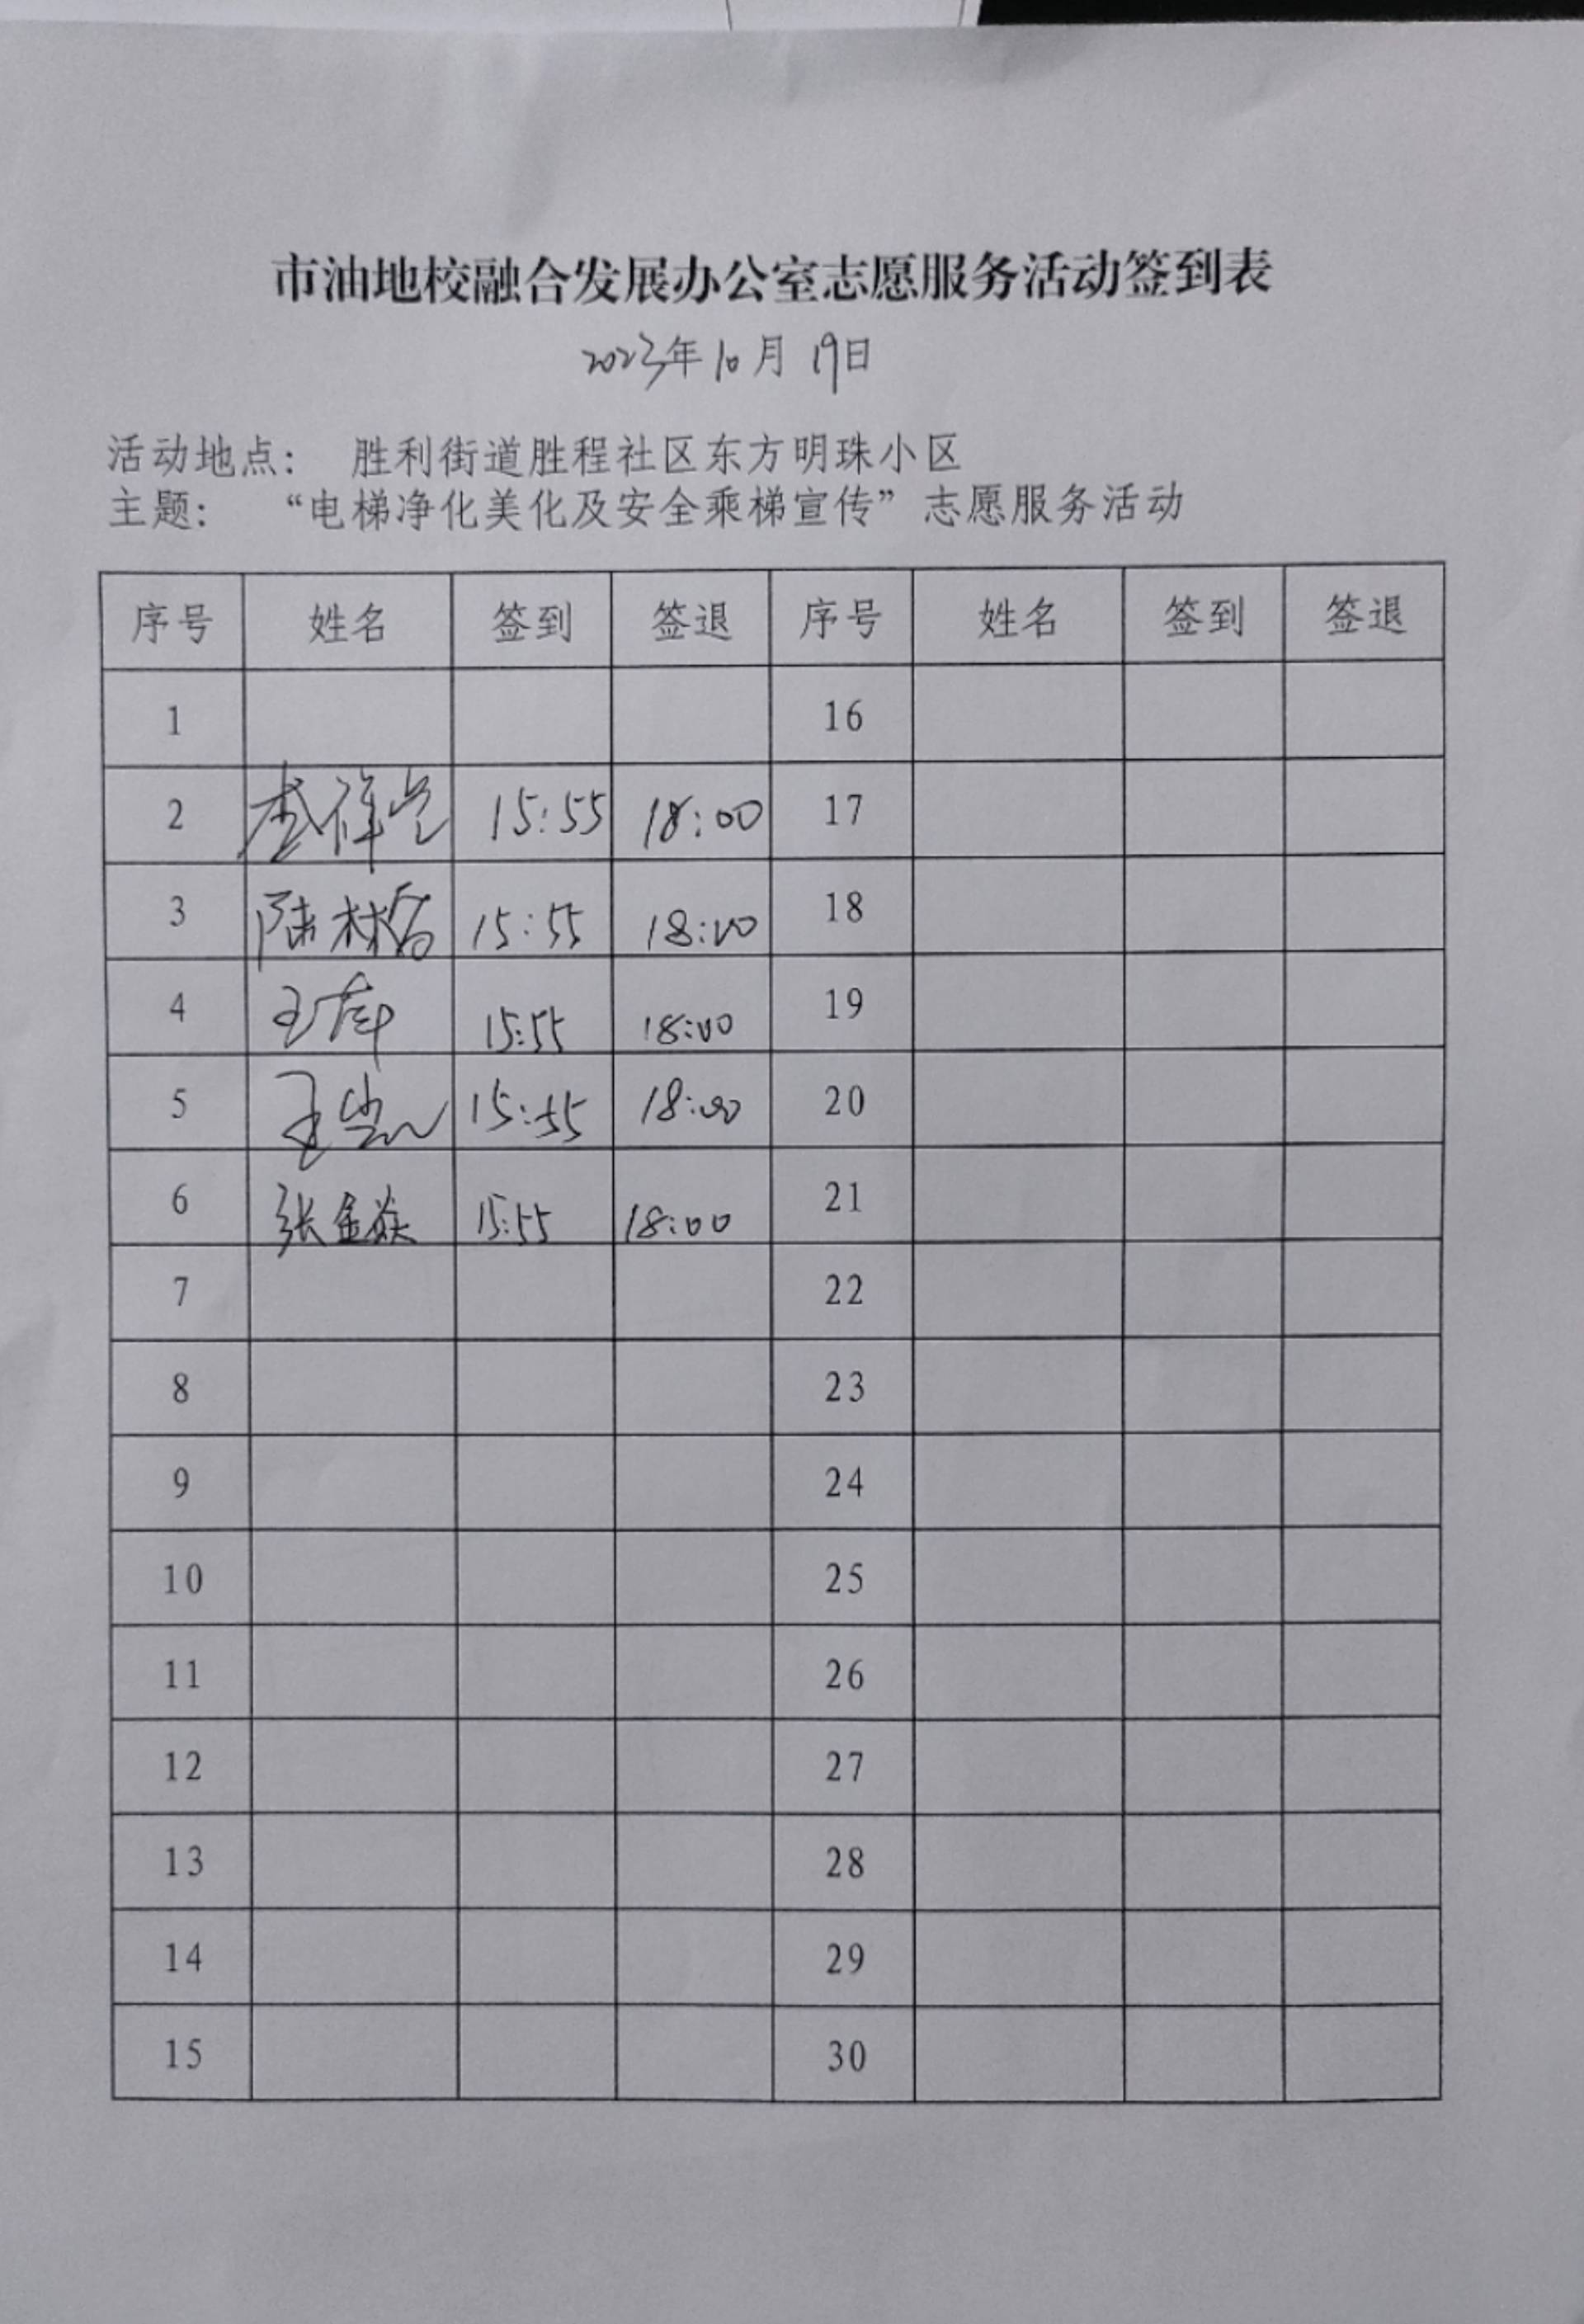 市油地校融合发展办公室志愿服务活动签到表
2023年10月19日
活动地点： 胜利街道胜程社区东方明珠小区
主题： “电梯净化美化及安全乘梯宣传”志愿服务活动
序号 姓名 签到 签退 序号 姓名 签到 签退
1 16
2 15:55 18:00 17
3 陆林 15:55 18:00 18
4 王 15:55 18:00 19
5 王 15:55 18:00 20
6 张金焱 15:55 18:00 21
7 22
8 23
9 24
10 25
11 26
12 27
13 28
14 29
15 30